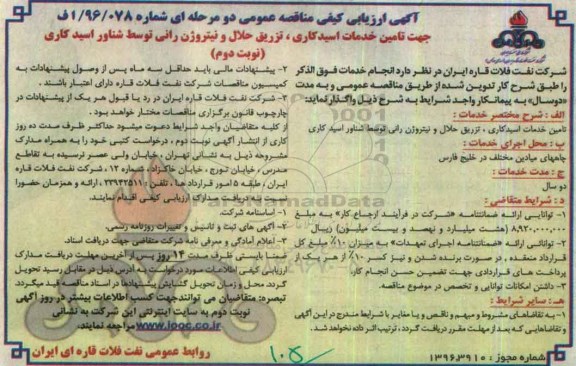 آگهی ارزیابی کیفی مناقصه عمومی دو مرحله ای شماره ۱/۹۶/۰۷۸ف
جهت تامین خدمات اسیدکاری ، تزریق حلال و نیتروژن رانی توسط شناور اسید کاری
(نوبت دوم)
شرکت نفت فلات قاره ایران در نظر دارد انجام خدمات فوق الذکر
را طبق شرح کار تدوین شده از طریق مناقصه عمومی و به مدت
«دوسال» به پیمانکار واجد شرایط به شرح ذیل واگذار نماید:
الف : شرح مختصر خدمات :
تامین خدمات اسیدکاری ، تزریق حلال و نیتروژن رانی توسط شناور اسید کاری
ب : محل اجرای خدمات :
چاههای میادین مختلف در خلیج فارس
ج : مدت خدمات :
دو سال
د : شرایط متقاضی :
۱- توانایی ارائه ضمانتنامه «شرکت در فرآیند ارجاع کار» به مبلغ
۸,۹۲۰,۰۰۰,۰۰۰ (هشت میلیارد و نهصد و بیست میلیون) ریال
۲- توانائی ارائه «ضمانتنامه اجرای تعهدات» به میزان ۱۰٪ مبلغ کل
قرارداد منعقده ، در صورت برنده شدن و نیز کسر ۱۰٪ از هر یک از
پرداخت های قراردادی جهت تضمین حسن انجام کار.
۳- داشتن امکانات توانایی و تخصص در موضوع مناقصه.
هـ: سایر شرایط :
۱- به تقاضاهای مشروط و مبهم و ناقص و یا مغایر با شرایط مندرج در این آگهی
و تقاضاهایی که بعد از مهلت مقرر دریافت گردد ، ترتیب اثر داده نخواهد شد.
شماره مجوز : ۱۳۹۶،۳۹۱۰
۲- پیشنهادات مالی باید حداقل سه ماه پس از وصول پیشنهادات به
کمیسیون مناقصات شرکت نفت فلات قاره دارای اعتبار باشند .
۳- شرکت نفت فلات قاره ایران در رد یا قبول هر یک از پیشنهادات در
چارچوب قانون برگزاری مناقصات مختار خواهد بود .
از کلیه متقاضیان واجد شرایط دعوت میشود حداکثر ظرف مدت ده روز
کاری از انتشار آگهی نوبت دوم ، درخواست کتبی خود را به همراه مدارک
مشروحه ذیل به نشانی تهران ، خیابان ولی عصر نرسیده به تقاطع
مدرس ، خیابان تورج ، خیابان خاکزاد ، شماره ۱۲ شرکت نفت فلات قاره
ایران ، طبقه ۵ امور قرارداد ها ، تلفن ۲۳۹۴۲۵۱۱ ، ارائه و همزمان حضورا
نسبت به دریافت مدارک ارزیابی کیفی اقدام نمایند.
۱- اساسنامه شرکت.
۲- آگهی های ثبت و تاسیس و تغییرات روزنامه رسمی.
۳- اعلام آمادگی و معرفی نامه شرکت متقاضی جهت دریافت اسناد.
ضمنا بایستی ظرف مدت ۱۴ روز پس از آخرین مهلت دریافت مدارک
ارزیابی کیفی اطلاعات مورد درخواست به آدرس ذیل در مقابل رسید تحویل
گردد. محل و زمان تحویل گشایش پیشنهادها در اسناد مناقصه قید میگردد.
تبصره: متقاضیان می توانند جهت کسب اطلاعات بیشتر در روز آگهی
نوبت دوم به سایت اینترنتی این شرکت به نشانی
www.iooc.co.ir مراجعه نمایند.
روابط عمومی نفت فلات قاره ای ایران